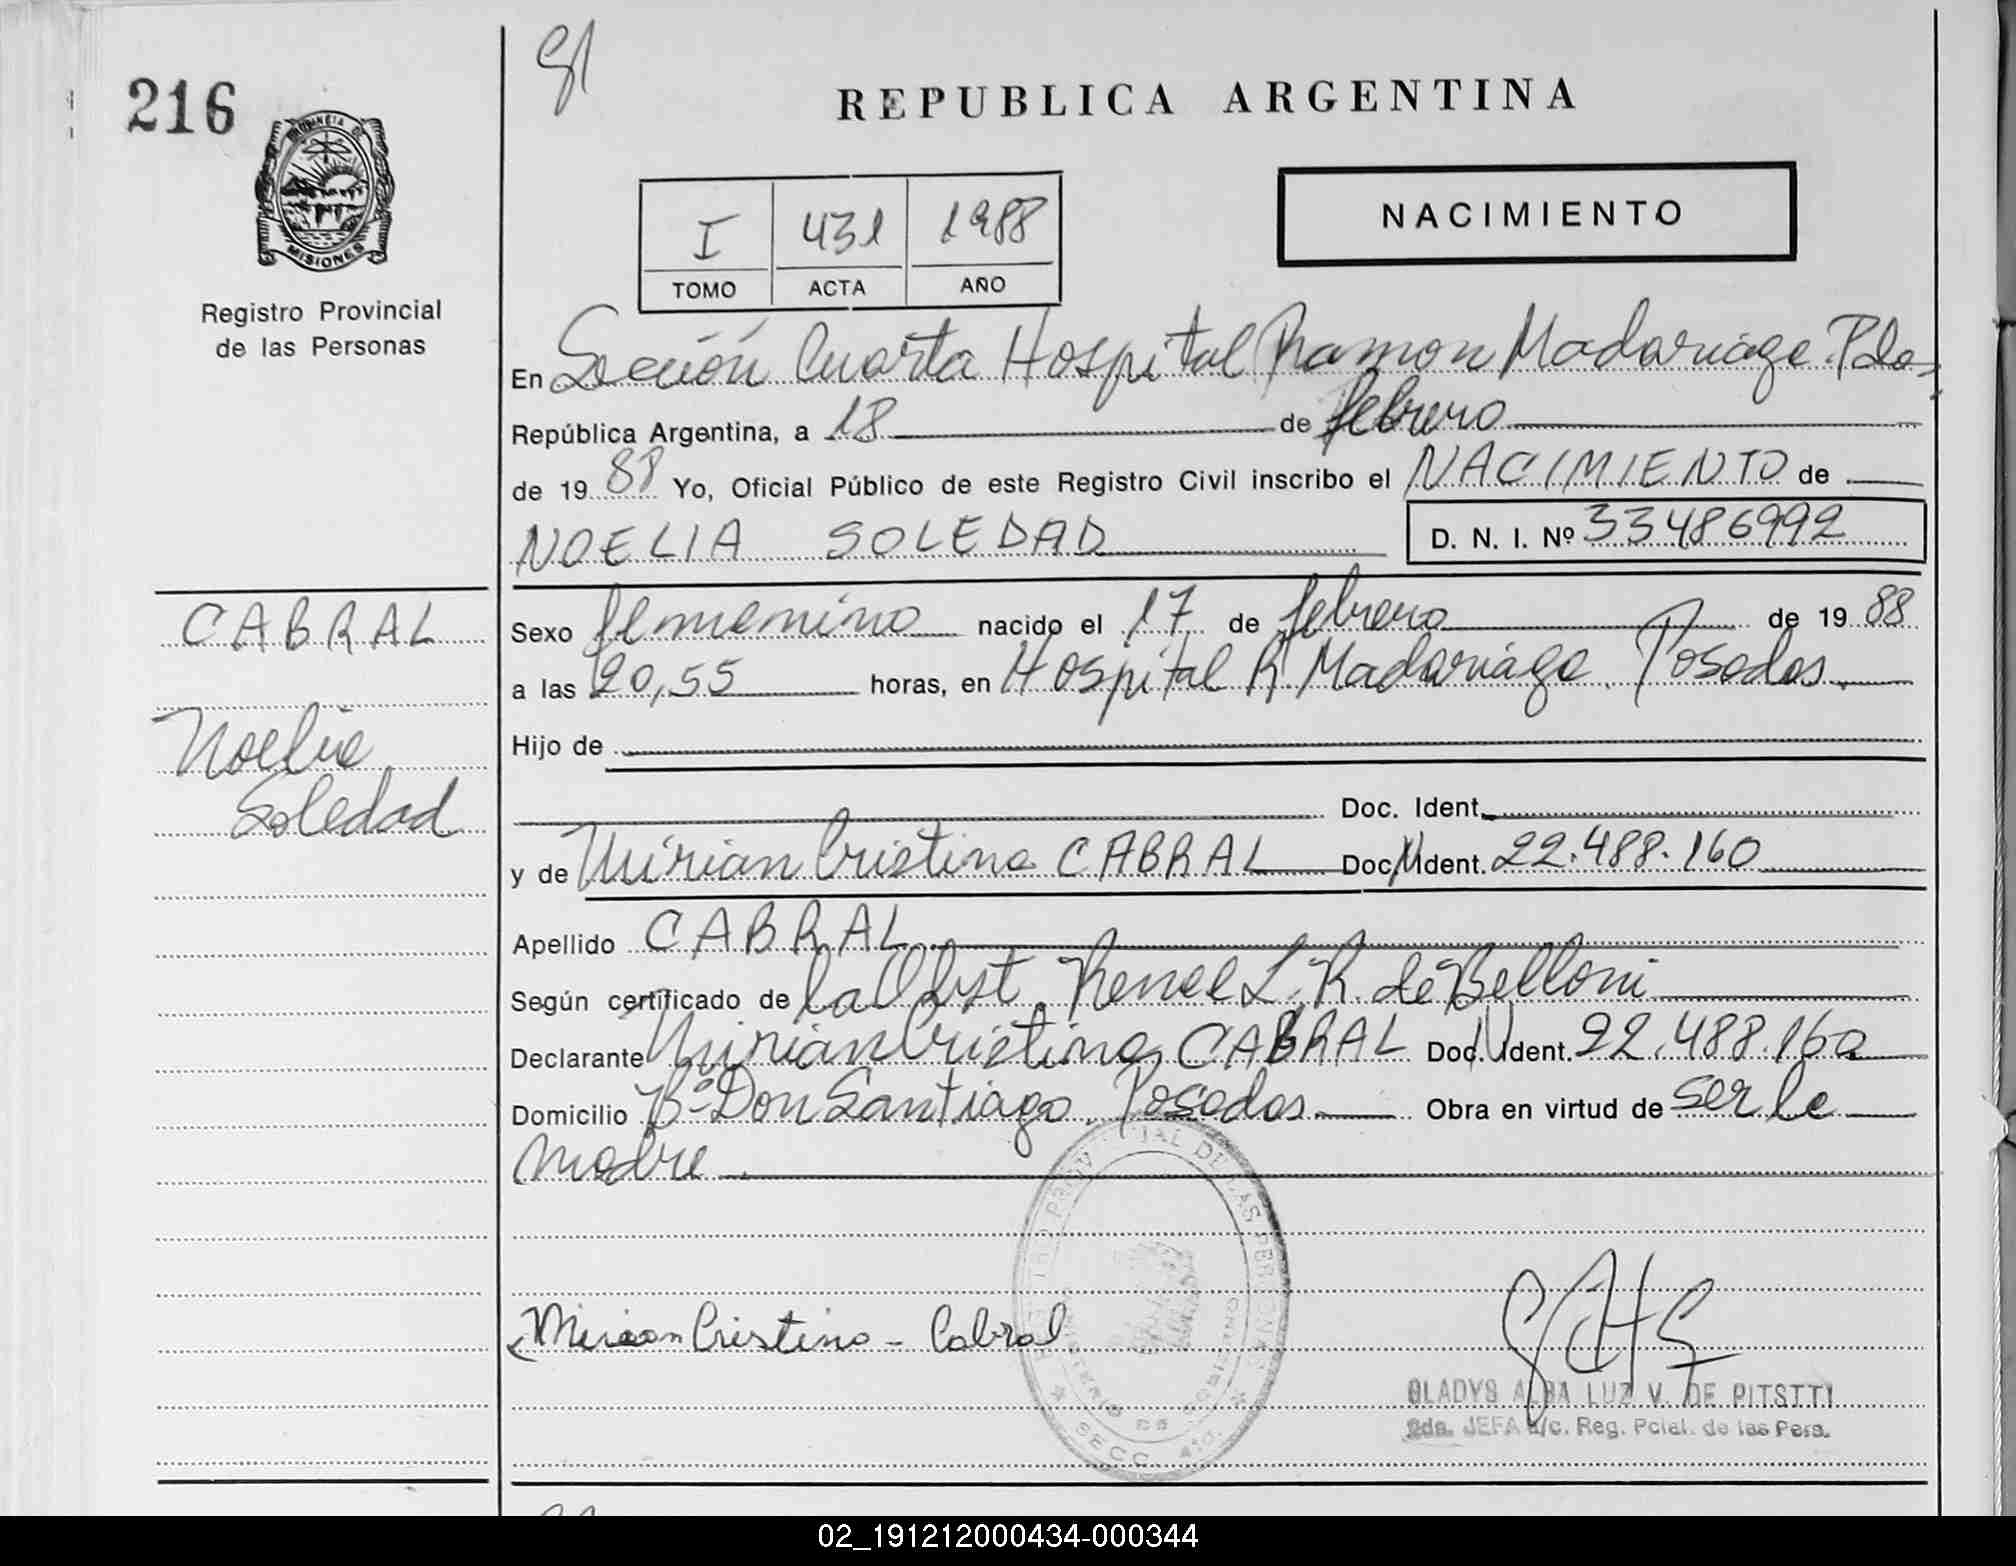 216
PROVINCIA DE
MISIONES
Registro Provincial
de las Personas
REPUBLICA ARGENTINA
I 431 1988
TOMO ACTA AÑO
NACIMIENTO
En Sección Cuarta Hospital Ramon Madariaga. Pdas,
República Argentina, a 18 de febrero
de 1988 Yo, Oficial Público de este Registro Civil inscribo el NACIMIENTO de
NOELIA SOLEDAD D. N. I. Nº 33486992
CABRAL
Noelia
Soledad
Sexo femenino nacido el 17 de febrero de 1988
a las 20,55 horas, en Hospital R. Madariaga. Posadas.
Hijo de
Doc. Ident.
y de Mirian Cristina CABRAL Doc. Ident. 22.488.160
Apellido CABRAL
Según certificado de la Obst. Renee L. R. de Belloni
Declarante Mirian Cristina CABRAL Doc. Ident. 22.488.160
Domicilio Bº Don Santiago. Posadas Obra en virtud de ser la
madre.
REGISTRO PROVINCIAL DE LAS PERSONAS
MINISTERIO DE GOBIERNO
SECC. 4ta.
Mirian Cristina - Cabral
GLADYS ALBA LUZ V. DE PITSTTI
2da. JEFA a/c. Reg. Pcial. de las Pers.
02_191212000434-000344